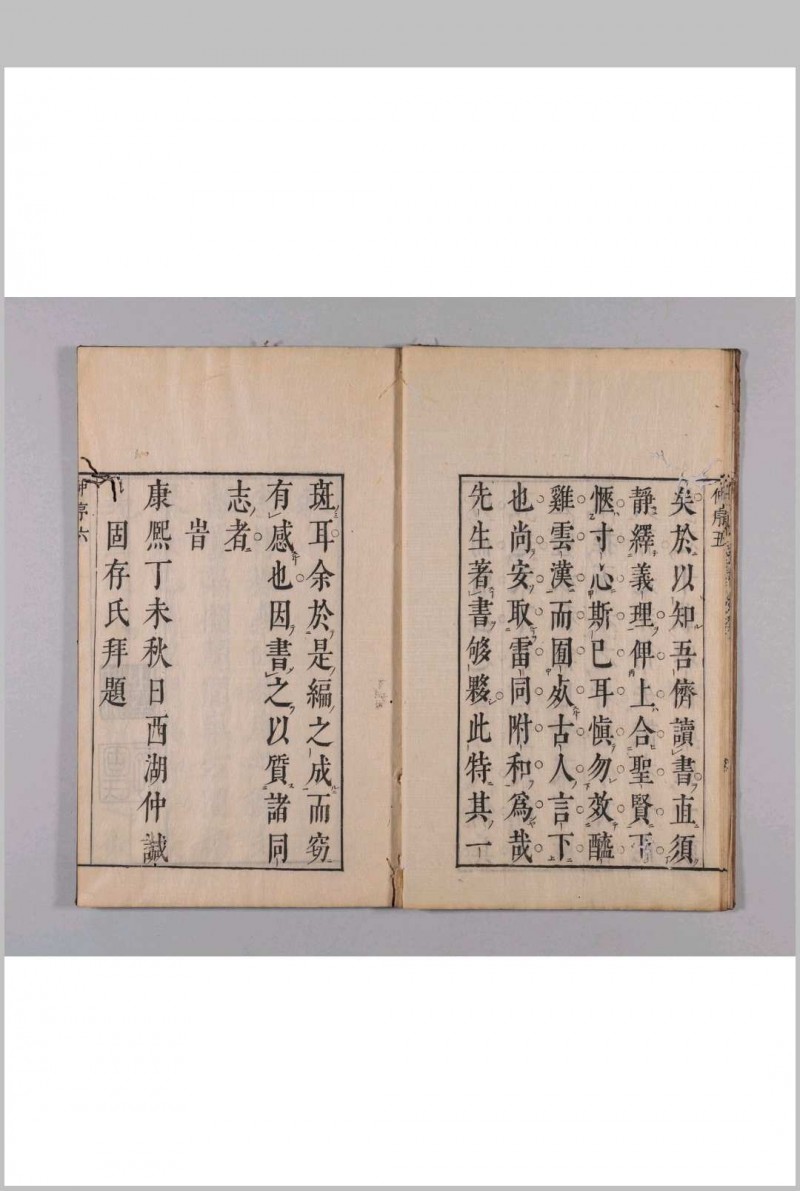 矣於以知吾儕讀書直須
靜繹義理俾上合聖賢下
愜寸心斯已耳慎勿效醯
雞雲漢而囿処古人言下
也尚安取雷同附和爲哉
先生著書够夥此特其一
斑耳余於是編之成而窃
有感也因書之以質諸同
志者
旹
康熈丁未秋日西湖仲誠
固存氏拜題